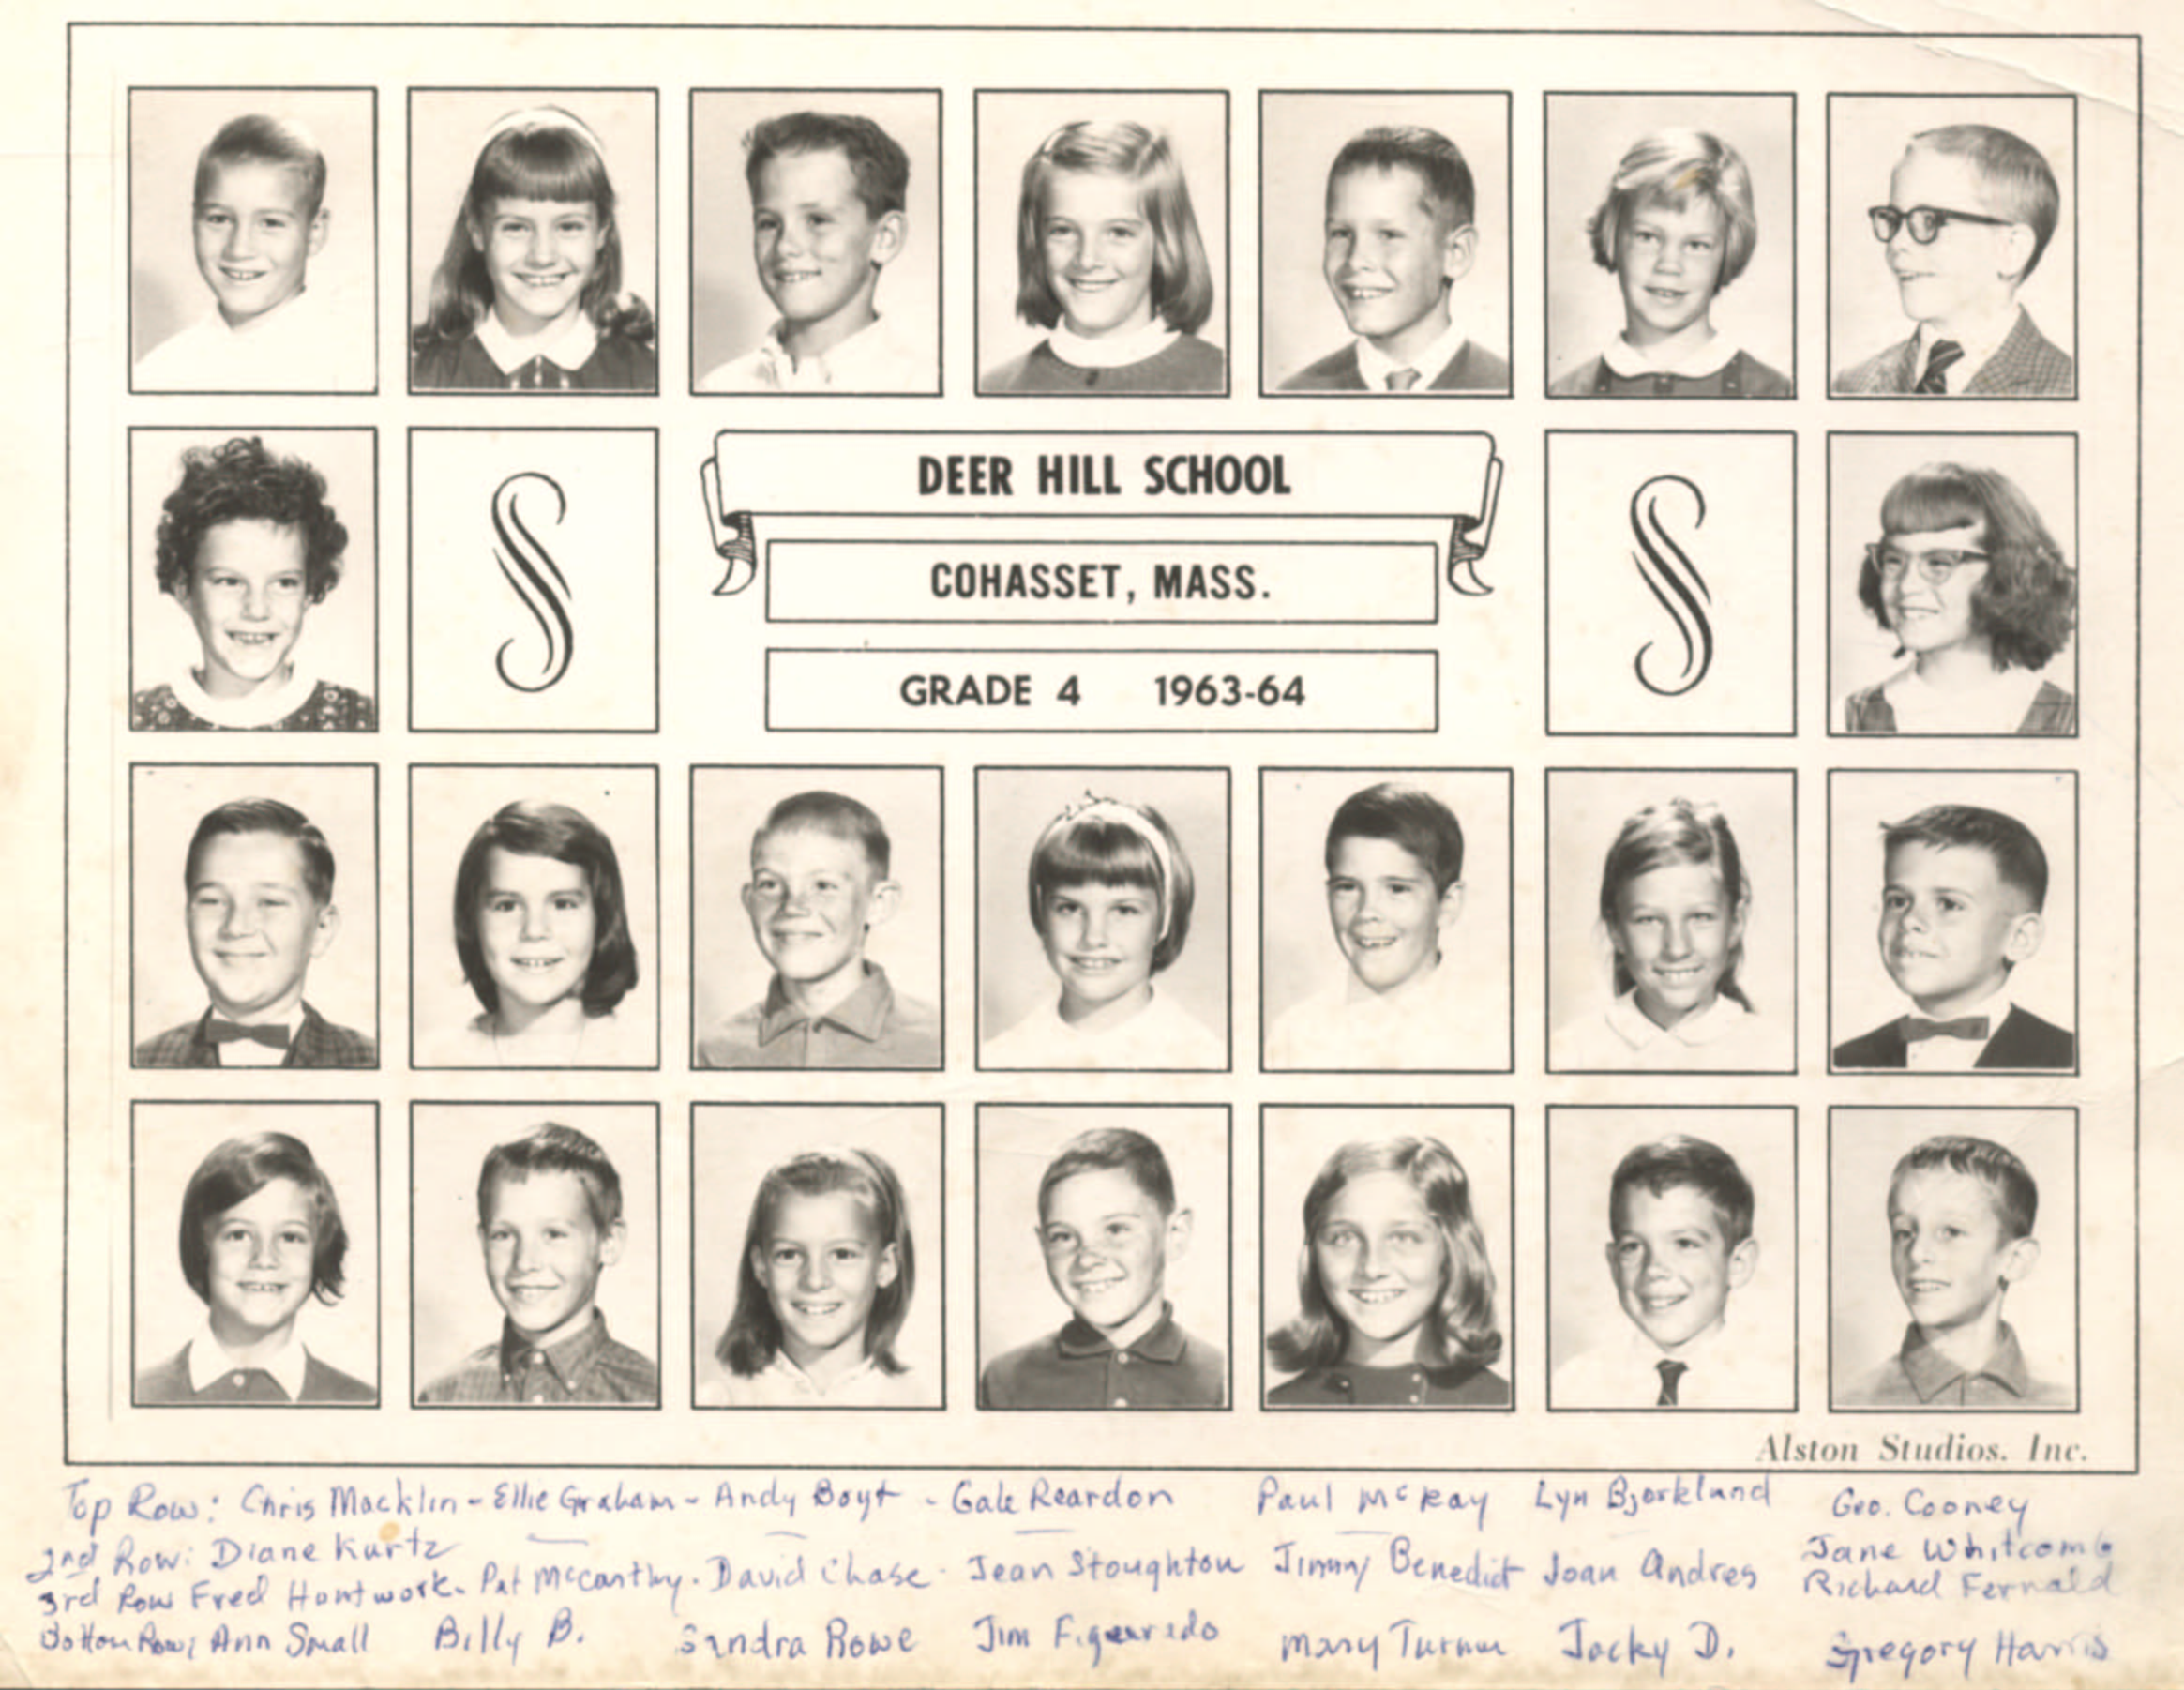 DEER HILL SCHOOL
COHASSET, MASS.
GRADE 4 1963-64
Alston Studios. Inc.
Top Row: Chris Macklin - Ellie Graham - Andy Boyt - Gale Reardon Paul McKay Lyn Bjorklund Geo. Cooney
2nd Row: Diane Kurtz Jane Whitcomb
3rd Row Fred Hontwork. Pat McCarthy. David Chase. Jean Stoughton Jimmy Benedict Joan Andres Richard Fernald
Bottom Row, Ann Small Billy B. Sandra Rowe Jim Figueredo Mary Turner Jacky D. Gregory Harris